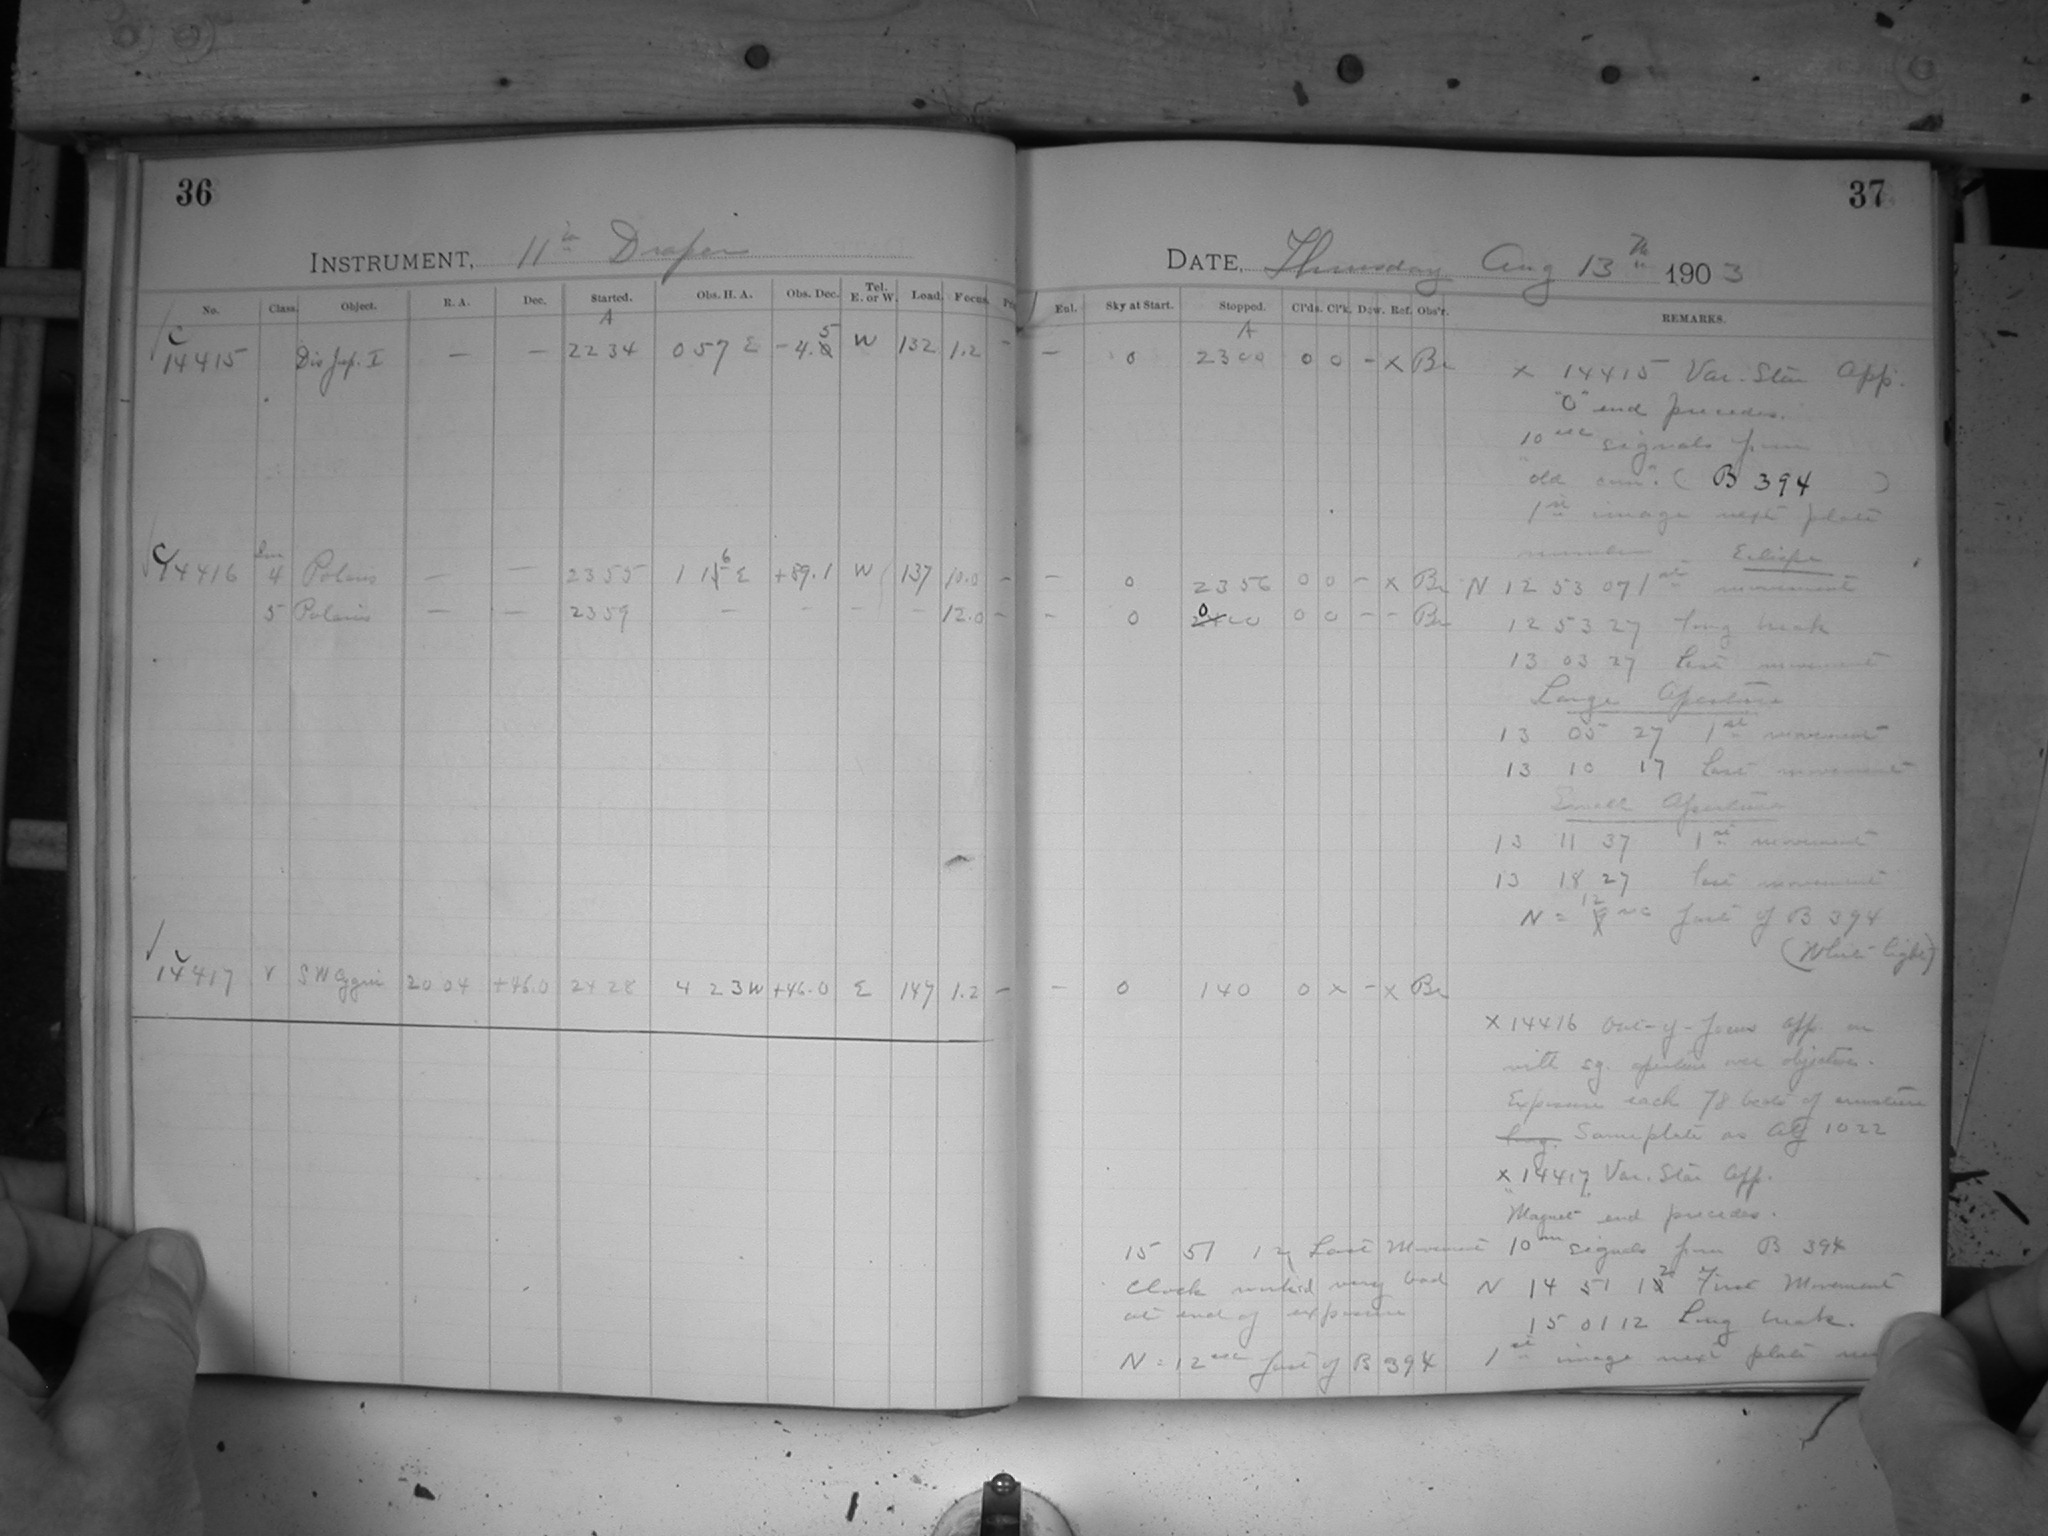 36
INSTRUMENT, 11 in Draper
No. Class. Object. R. A. Dec. Started. Obs. H. A. Obs. Dec. Tel. E. or W. Load. Focus.
A
C 14415 Dis Jup. I — — 22 34 0 57 E -4.5 W 132 1.2 -
C 14416 4 Polaris — — 23 55 1 16 E +89.1 W 137 10.0 -
5 Polaris — — 23 59 — — — — 12.0 -
C 14417 V SW Cygni 20 04 +46.0 24 28 4 23 W +46.0 E 147 1.2 -
37
DATE, Thursday Aug 13th 1903
Eul. Sky at Start. Stopped. Cl'ds. Cl'k. Dew. Ref. Obs'r. REMARKS.
A
— 0 23 00 0 0 - x Br
— 0 23 56 0 0 - x Br
— 0 0 0 0 - - Br
— 0 1 40 0 x - x Br
x 14415 Var. Star App.
"O" end precedes.
10 sec signals from
"old com". ( B 394 )
1st image next plate
number Eclipse
N 12 53 07 1st movement
12 53 27 Long break
13 03 27 Last movement
Large Aperture
13 05 27 1st movement
13 10 17 Last movement
Small Aperture
13 11 37 1st movement
13 18 27 Last movement
N = 12 sec fast of B 394
(White light)
x 14416 Out-of-focus App. on
with sq. aperture over objective.
Exposure each 78 beats of armature
Same plate as 1022
x 14417 Var. Star App.
"Magnet" end precedes.
10 sec signals from B 394
N 14 51 12 First Movement
15 01 12 Long break.
1st image next plate
15 51 12 Last Movement
Clock worked very bad
at end of exposure
N = 12 sec fast of B 394